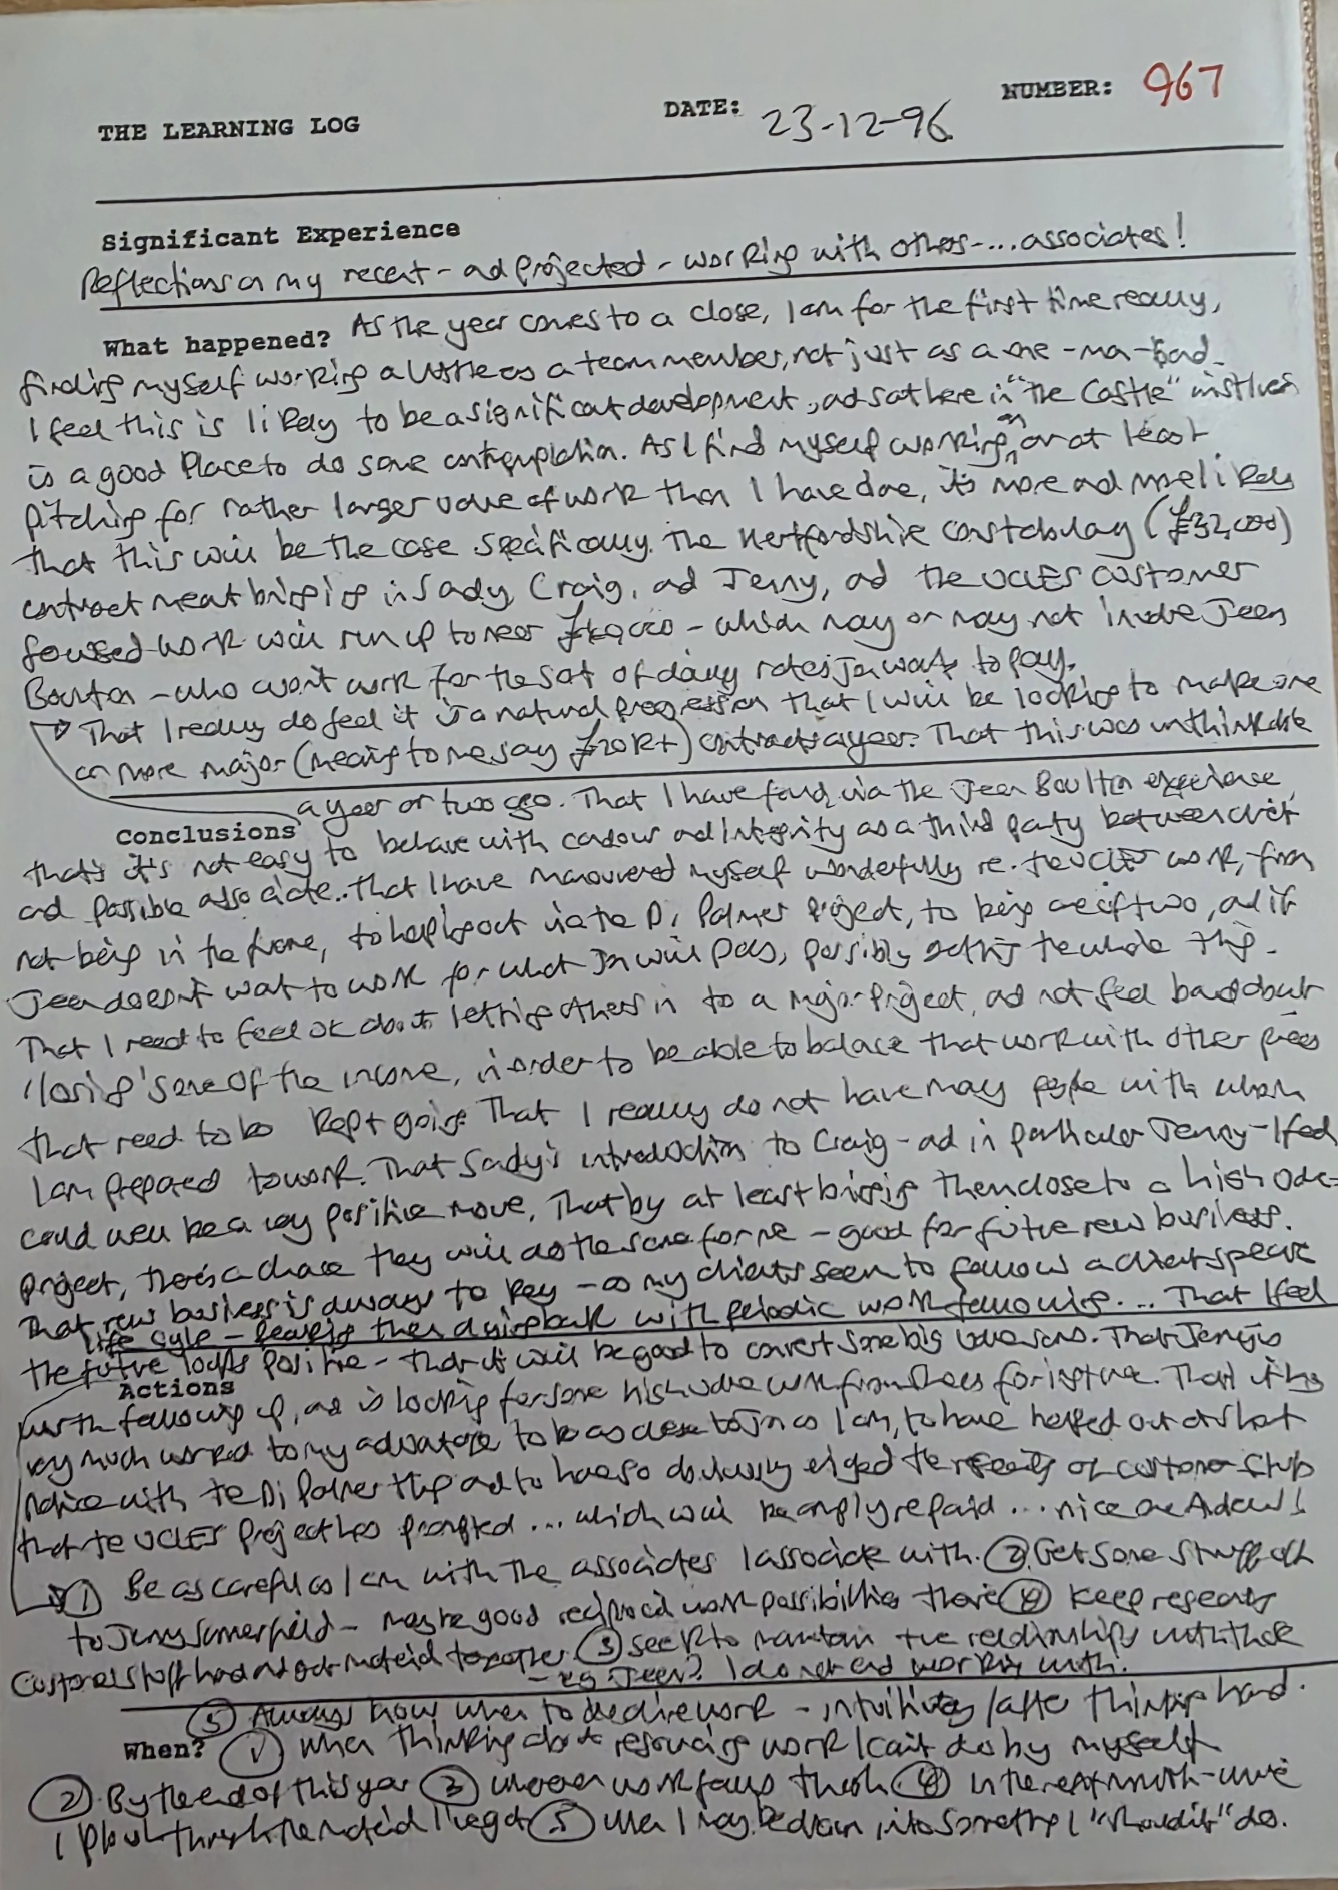 THE LEARNING LOG DATE: 23-12-96 NUMBER: 967
Significant Experience
Reflections on my recent - and projected - working with others-... associates!
What happened? As the year comes to a close, I am for the first time really,
finding myself working a little as a team member, not just as a one-man-band.
I feel this is likely to be a significant development, and sat here in "The Castle"
is a good place to do some contemplation. As I find myself working on, or at least
pitching for rather larger value of work than I have done, it's more and more likely
that this will be the case. Specifically. The Hertfordshire Constabulary (£32,000)
contract meant bringing in Sandy, Craig, and Jenny, and the UCLES customer
focused work will run up to near - which may or may not involve Jean
Boulton - who won't work for the sort of daily rates Jon wants to pay.
→ That I really do feel it is a natural progression that I will be looking to make one
or more major (meaning to me say £20K+) contracts a year. That this was unthinkable
a year or two ago. That I have found, via the Jean Boulton experience,
Conclusions
that it's not easy to behave with candour and integrity as a third party between client
and possible associate.. That I have manouvered myself wonderfully re. the UCLES work, from
not being in the frame, to help out via the Di Palmer project, to being one of two, and if
Jean doesn't want to work for what Jon will pay, possibly getting the whole thing.
That I need to feel OK about letting others in to a major project, and not feel bad about
'losing' some of the income, in order to be able to balance that work with other pieces
that need to be kept going. That I really do not have many people with whom
I am prepared to work. That Sandy's introduction to Craig - and in particular Jenny - I feel
could well be a very positive move. That by at least bringing them close to a high value
project, there's a chance they will do the same for me - good for future new business.
That new business is always to key - as my clients seem to follow a clear
life cycle - peaking then dying back with periodic work following... That I feel
the future looks positive - that it will be good to convert some big . That Jenny is
Actions
worth following up, and is looking for some high value work from for instance. That it has
very much worked to my advantage to be as close to Jon as I am, to have helped out at short
notice with the Di Palmer thing and to have so edged the on customer stuff
that the UCLES project has prompted ... which will be amply repaid ... nice one Adcock!
① Be as careful as I am with the associates I associate with. ② Get some stuff off
to Jenny Somerfield - maybe good reciprocal work possibilities there ④ Keep
Customer stuff and get material together ③ Seek to maintain the relationships with those
- eg Jean? I do not end working with!
⑤ Always know when to decline work - intuitively/after thinking hard.
When? ① When thinking about resourcing work I can't do by myself
② By the end of this year ③ whenever work falls through ④ In the next month - while
I plough through the material I've got ⑤ When I may be drawn into something I "shouldn't" do.